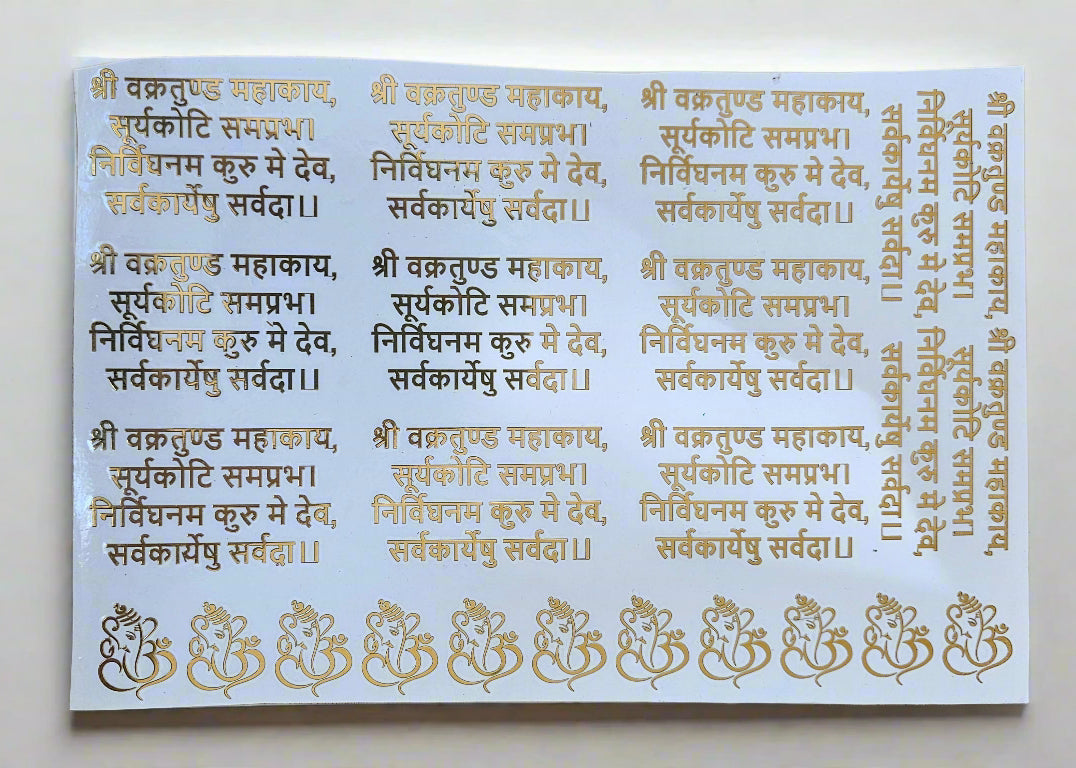 श्री वक्रतुण्ड महाकाय,
सूर्यकोटि समप्रभ।
निर्विघनम कुरु मे देव,
सर्वकार्येषु सर्वदा।।
श्री वक्रतुण्ड महाकाय,
सूर्यकोटि समप्रभ।
निर्विघनम कुरु मे देव,
सर्वकार्येषु सर्वदा।।
श्री वक्रतुण्ड महाकाय,
सूर्यकोटि समप्रभ।
निर्विघनम कुरु मे देव,
सर्वकार्येषु सर्वदा।।
श्री वक्रतुण्ड महाकाय,
सूर्यकोटि समप्रभ।
निर्विघनम कुरु मे देव,
सर्वकार्येषु सर्वदा।।
श्री वक्रतुण्ड महाकाय,
सूर्यकोटि समप्रभ।
निर्विघनम कुरु मे देव,
सर्वकार्येषु सर्वदा।।
श्री वक्रतुण्ड महाकाय,
सूर्यकोटि समप्रभ।
निर्विघनम कुरु मे देव,
सर्वकार्येषु सर्वदा।।
श्री वक्रतुण्ड महाकाय,
सूर्यकोटि समप्रभ।
निर्विघनम कुरु मे देव,
सर्वकार्येषु सर्वदा।।
श्री वक्रतुण्ड महाकाय,
सूर्यकोटि समप्रभ।
निर्विघनम कुरु मे देव,
सर्वकार्येषु सर्वदा।।
श्री वक्रतुण्ड महाकाय,
सूर्यकोटि समप्रभ।
निर्विघनम कुरु मे देव,
सर्वकार्येषु सर्वदा।।
श्री वक्रतुण्ड महाकाय,
सूर्यकोटि समप्रभ।
निर्विघनम कुरु मे देव,
सर्वकार्येषु सर्वदा।।
श्री वक्रतुण्ड महाकाय,
सूर्यकोटि समप्रभ।
निर्विघनम कुरु मे देव,
सर्वकार्येषु सर्वदा।।